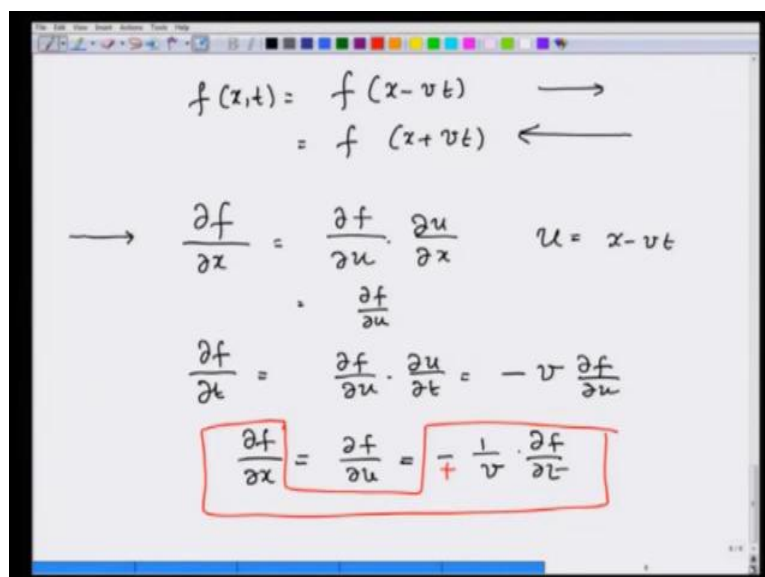 File Edit View Insert Actions Tools Help
f(x,t) = f(x-vt) →
= f (x+vt) ←
→ ∂f/∂x = ∂f/∂u · ∂u/∂x u = x-vt
= ∂f/∂u
∂f/∂t = ∂f/∂u · ∂u/∂t = - v ∂f/∂u
∂f/∂x = ∂f/∂u = ∓ 1/v · ∂f/∂t